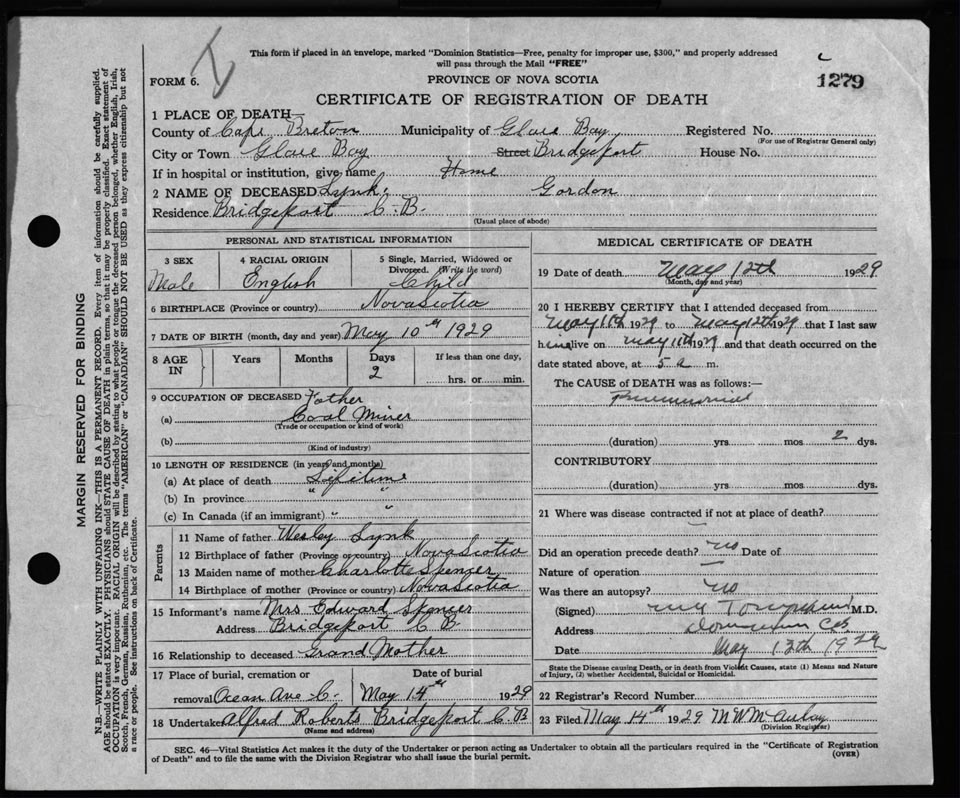 This form if placed in an envelope, marked "Dominion Statistics—Free, penalty for improper use, $300," and properly addressed
will pass through the Mail "FREE"
FORM 6.
PROVINCE OF NOVA SCOTIA
1279
CERTIFICATE OF REGISTRATION OF DEATH
1 PLACE OF DEATH
County of Cape Breton Municipality of Glace Bay Registered No.
(For use of Registrar General only)
City or Town Glace Bay Street Bridgeport House No.
If in hospital or institution, give name Home
2 NAME OF DECEASED Lynk, Gordon
Residence Bridgeport C.B.
(Usual place of abode)
PERSONAL AND STATISTICAL INFORMATION
3 SEX 4 RACIAL ORIGIN 5 Single, Married, Widowed or
Divorced. (Write the word)
Male English Child
6 BIRTHPLACE (Province or country) Nova Scotia
7 DATE OF BIRTH (month, day and year) May 10th 1929
8 AGE IN Years Months Days If less than one day
2 hrs. or min.
9 OCCUPATION OF DECEASED Father
(a) Coal Miner
(Trade or occupation or kind of work)
(b)
(Kind of industry)
10 LENGTH OF RESIDENCE (in years and months)
(a) At place of death Lifetime
(b) In province " "
(c) In Canada (if an immigrant) " "
Parents
11 Name of father Wesley Lynk
12 Birthplace of father (Province or country) Nova Scotia
13 Maiden name of mother Charlotte Spencer
14 Birthplace of mother (Province or country) Nova Scotia
15 Informant's name Mrs Edward Spencer
Address Bridgeport C B
16 Relationship to deceased Grand Mother
17 Place of burial, cremation or Date of burial
removal Ocean Ave C. May 14th 1929
18 Undertaker Alfred Roberts Bridgeport C B
(Name and address)
MEDICAL CERTIFICATE OF DEATH
19 Date of death May 12th 1929
(Month, day and year)
20 I HEREBY CERTIFY that I attended deceased from
May 11th 1929 to May 12th 1929 that I last saw
h im alive on May 11th 1929 and that death occurred on the
date stated above, at 5 a m.
The CAUSE of DEATH was as follows:—
(duration) yrs mos 2 dys.
CONTRIBUTORY
(duration) yrs. mos. dys.
21 Where was disease contracted if not at place of death?
Did an operation precede death? no Date of
Nature of operation
Was there an autopsy? no
(Signed) M.D.
Address Dominion CB
Date May 13th 1929
State the Disease causing Death, or in death from Violent Causes, state (1) Means and Nature
of Injury, (2) whether Accidental, Suicidal or Homicidal.
22 Registrar's Record Number
23 Filed May 14th 1929 M W McAulay
(Division Registrar)
SEC. 46—Vital Statistics Act makes it the duty of the Undertaker or person acting as Undertaker to obtain all the particulars required in the "Certificate of Registration
of Death" and to file the same with the Division Registrar who shall issue the burial permit.
(OVER)
MARGIN RESERVED FOR BINDING
N.B.—WRITE PLAINLY WITH UNFADING INK—THIS IS A PERMANENT RECORD. Every item of information should be carefully supplied.
AGE should be stated EXACTLY. PHYSICIANS should STATE CAUSE OF DEATH in plain terms, so that it may be properly classified. Exact statement of
OCCUPATION is very important. RACIAL ORIGIN will be described by stating to what people or tongue the deceased person belonged, whether English, Irish,
Scotch, French, German, Russian, Ruthenian, etc. The terms "AMERICAN" or "CANADIAN" SHOULD NOT BE USED as they express citizenship but not
a race or people. See instructions on back of Certificate.